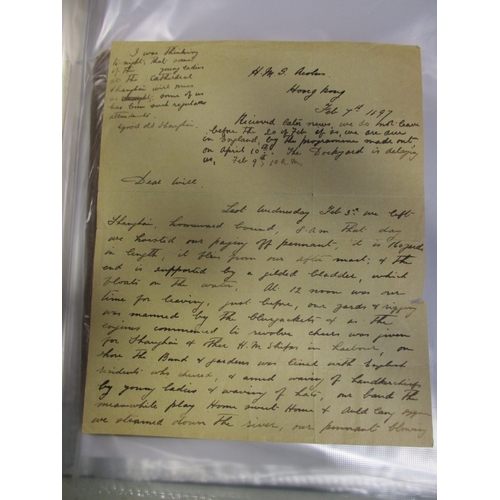 I was thinking
to night, that some
of the young ladies
at the Cathedral
Shanghai will miss
us, some of us
has been such regular
attendants.
Good old Shanghai.
H.M.S. Aeolus
Hong Kong
Feb 7th 1897
Received later news, we do not leave
before the 20 of Feb if so, we are due
in England, by the programme made out,
on April 10th. The Dockyard is delaying
us, Feb 9th, 10 a.m.
Dear Will
Last Wednesday Feb 3rd we left
Shanghai, homeward bound, 8 Am that day
we hoisted our paying off pennant, it is yards
in length, it flies from our after mast; & the
end is supported by a gilded bladder, which
floats on the water. At 12 noon was our
time for leaving, just before, our yards & rigging
was manned by the bluejackets & as the
engines commenced to revolve cheers was given
for Shanghai & other H.M. Ships in harbour, on
shore the Bund & gardens was lined with English
residents who cheered, & amid waving of Handkerchiefs
by young ladies & waving of hats, our band the
meanwhile play Home sweet Home & Auld Lang Syne
we steamed down the river, our pennant blowing